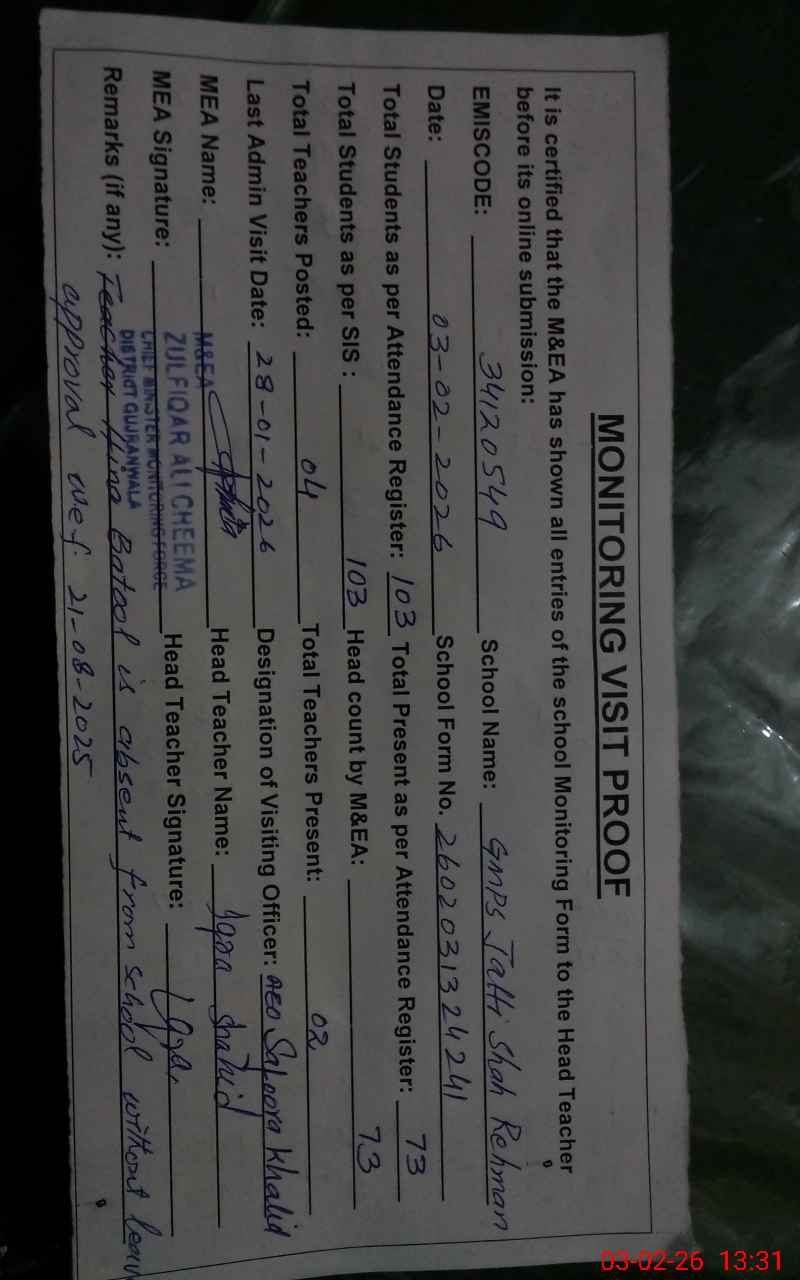 MONITORING VISIT PROOF
It is certified that the M&EA has shown all entries of the school Monitoring Form to the Head Teacher
before its online submission:
EMISCODE: 34120549 School Name: GMPS Jatti Shah Rehman
Date: 03-02-2026 School Form No. 2602031324241
Total Students as per Attendance Register: 103 Total Present as per Attendance Register: 73
Total Students as per SIS : 103 Head count by M&EA: 73
Total Teachers Posted: 04 Total Teachers Present: 02
Last Admin Visit Date: 28-01-2026 Designation of Visiting Officer: AEO Safoora Khalid
MEA Name: M&EA Head Teacher Name: Iqra Shahid
ZULFIQAR ALI CHEEMA
MEA Signature: CHIEF MINISTER MONITORING FORCE Head Teacher Signature: Iqra
DISTRICT GUJRANWALA
Remarks (if any): Teacher Hina Batool is absent from school without leav
approval wef 21-08-2025
03-02-26 13:31